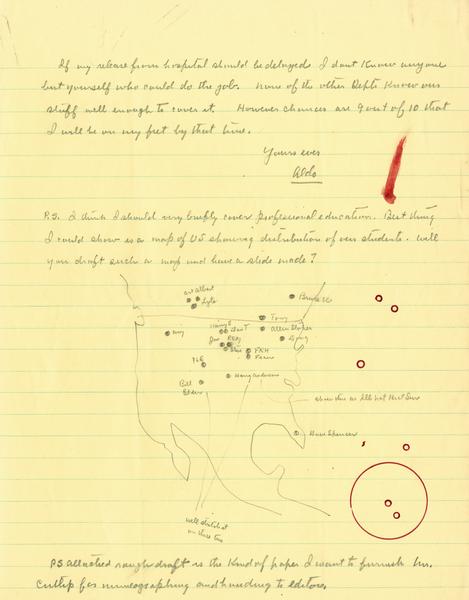 If my release from hospital should be delayed I dont know anyone
but yourself who could do the job. None of the other Depts know our
stuff well enough to cover it. However chances are 9 out of 10 that
I will be on my feet by that time.
Yours ever
Aldo
P.S. I think I should very briefly cover professional education. Best thing
I could show is a map of US showing distribution of our students. Will
you draft such a map and have a slide made?
Art Albert
Lyle
Bruce
Tony
Irv
Allen
Doug
FNH
Hans Anderson
Bill
Dave Spencer
well distributed
PS attached rough draft is the kind of paper I want to furnish Mr.
Cutlip for mimeographing and handing to editors.